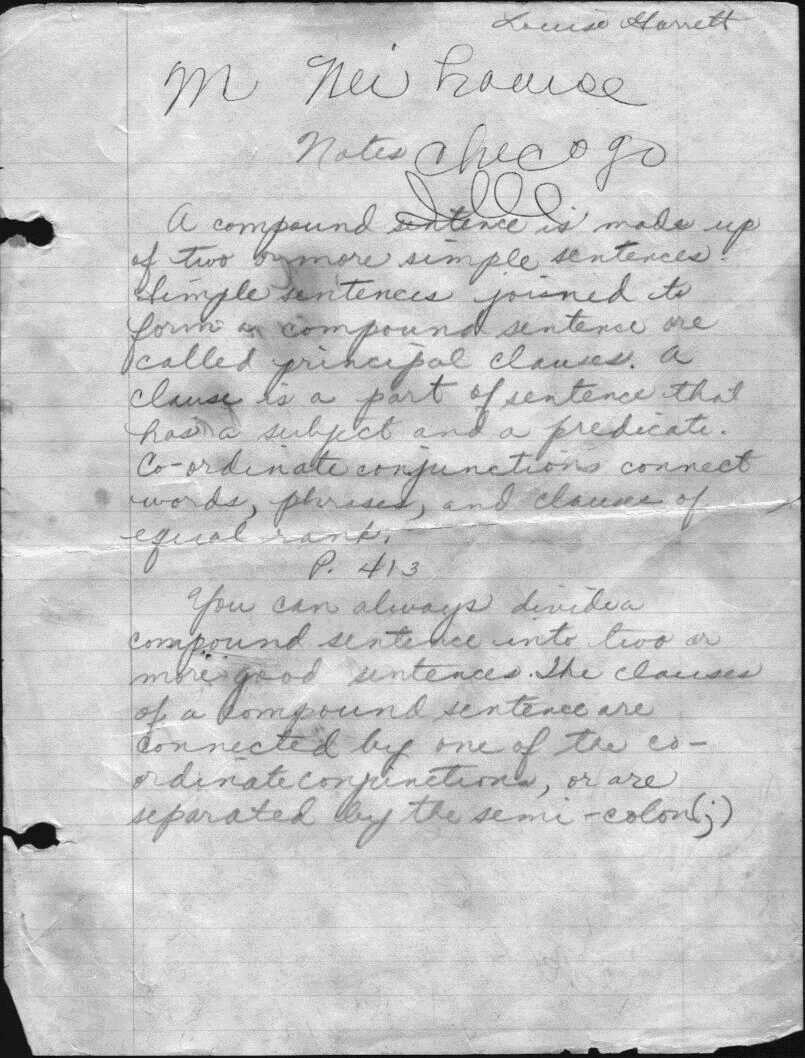 Louise Garrett
M Nei house
Notes Checogo
Illl
A compound sentence is made up
of two or more simple sentences.
Simple sentences joined to
form a compound sentence are
called principal clauses. A
clause is a part of sentence that
has a subject and a predicate.
Co-ordinate conjunctions connect
words, phrases, and clauses of
equal rank.
P. 413
You can always divide a
compound sentence into two or
more good sentences. The clauses
of a compound sentence are
connected by one of the co-
ordinate conjunctions, or are
separated by the semi-colon(;)